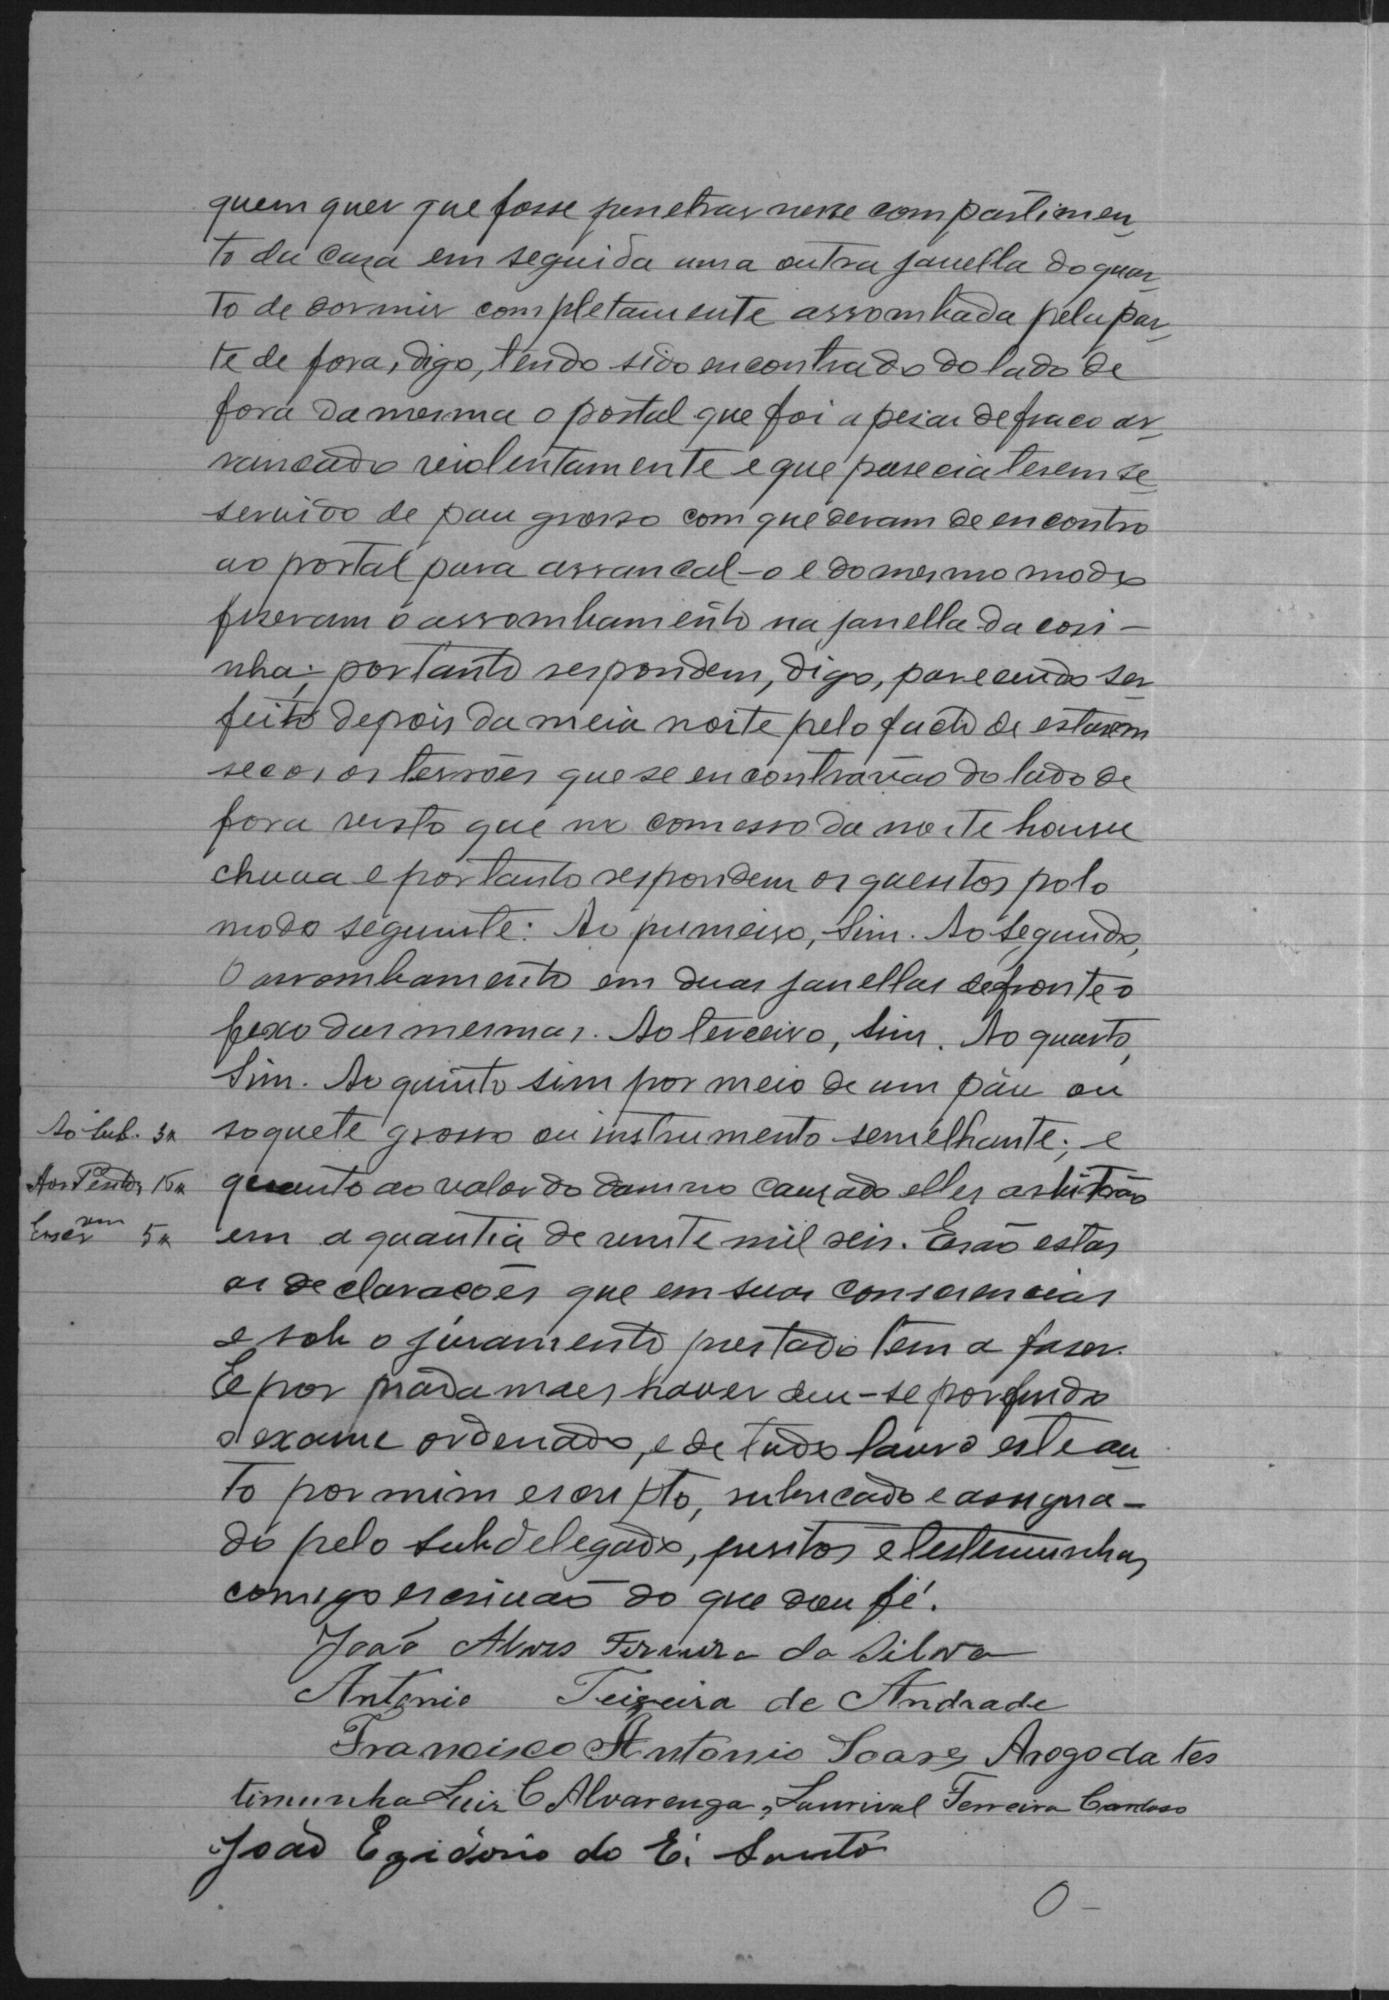 quem quer que fosse penetrar nesse compartimen-
to da caza em seguida uma outra janella do quar-
to de dormir completamente arrombada pela par-
te de fora, digo, tendo sido encontrado do lado de
fora da mesma o portal que foi apesar de fraco ar-
rancado violentamente e que parecia terem se
servido de pau grosso com que deram de encontro
ao portal para arrancal-o e do mesmo modo
fiseram o arrombamento na janella da cosi-
nha; portanto respondem, digo, parecendo ser
feito depois da meia noite pelo facto de estarem
secos os terrões que se encontravão do lado de
fora visto que no comesso da noite houve
chuva e portanto respondem os quesitos polo
modo seguinte: Ao primeiro, Sim. Ao segundo,
O arrombamento em duas janellas defronte o
fexo das mesmas. Ao terceiro, Sim. Ao quarto,
Sim. Ao quinto sim por meio de um páu ou
Ao Sub. 3$ soquete grosso ou instrumento semelhante; e
Aos Peritos 15$ quanto ao valor do damno cauzado elles arbitrão
Escrvam 5$ em a quantia de vinte mil reis. Erão estas
as declaracões que em suas consciencias
e sob o juramento prestado tem a faser.
E por nada mais haver deu-se por findo
o exame ordenado, e de tudo lavro este au-
to por mim escripto, rubricado e assigna-
do pelo subdelegado, peritos e testemunhas
comigo escrivão do que dou fé.
João Alves Ferreira da Silva
Antonio Teixeira de Andrade
Francisco Antonio Soares Arogo da tes
timunha Luiz C Alvarenga, Laurival Ferreira Cardoso
João Egidorio do E. Santo